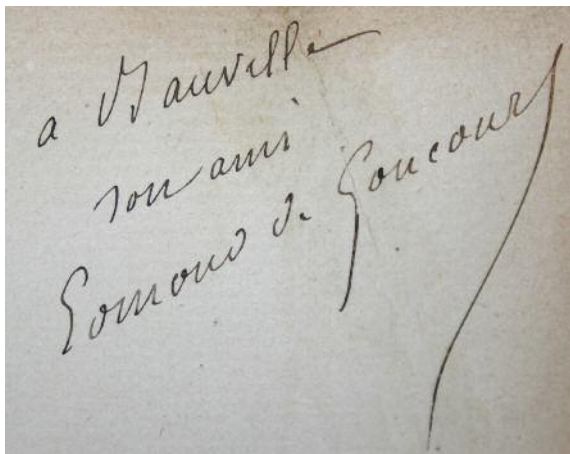 a Banville
son ami
Edmond de Goncourt